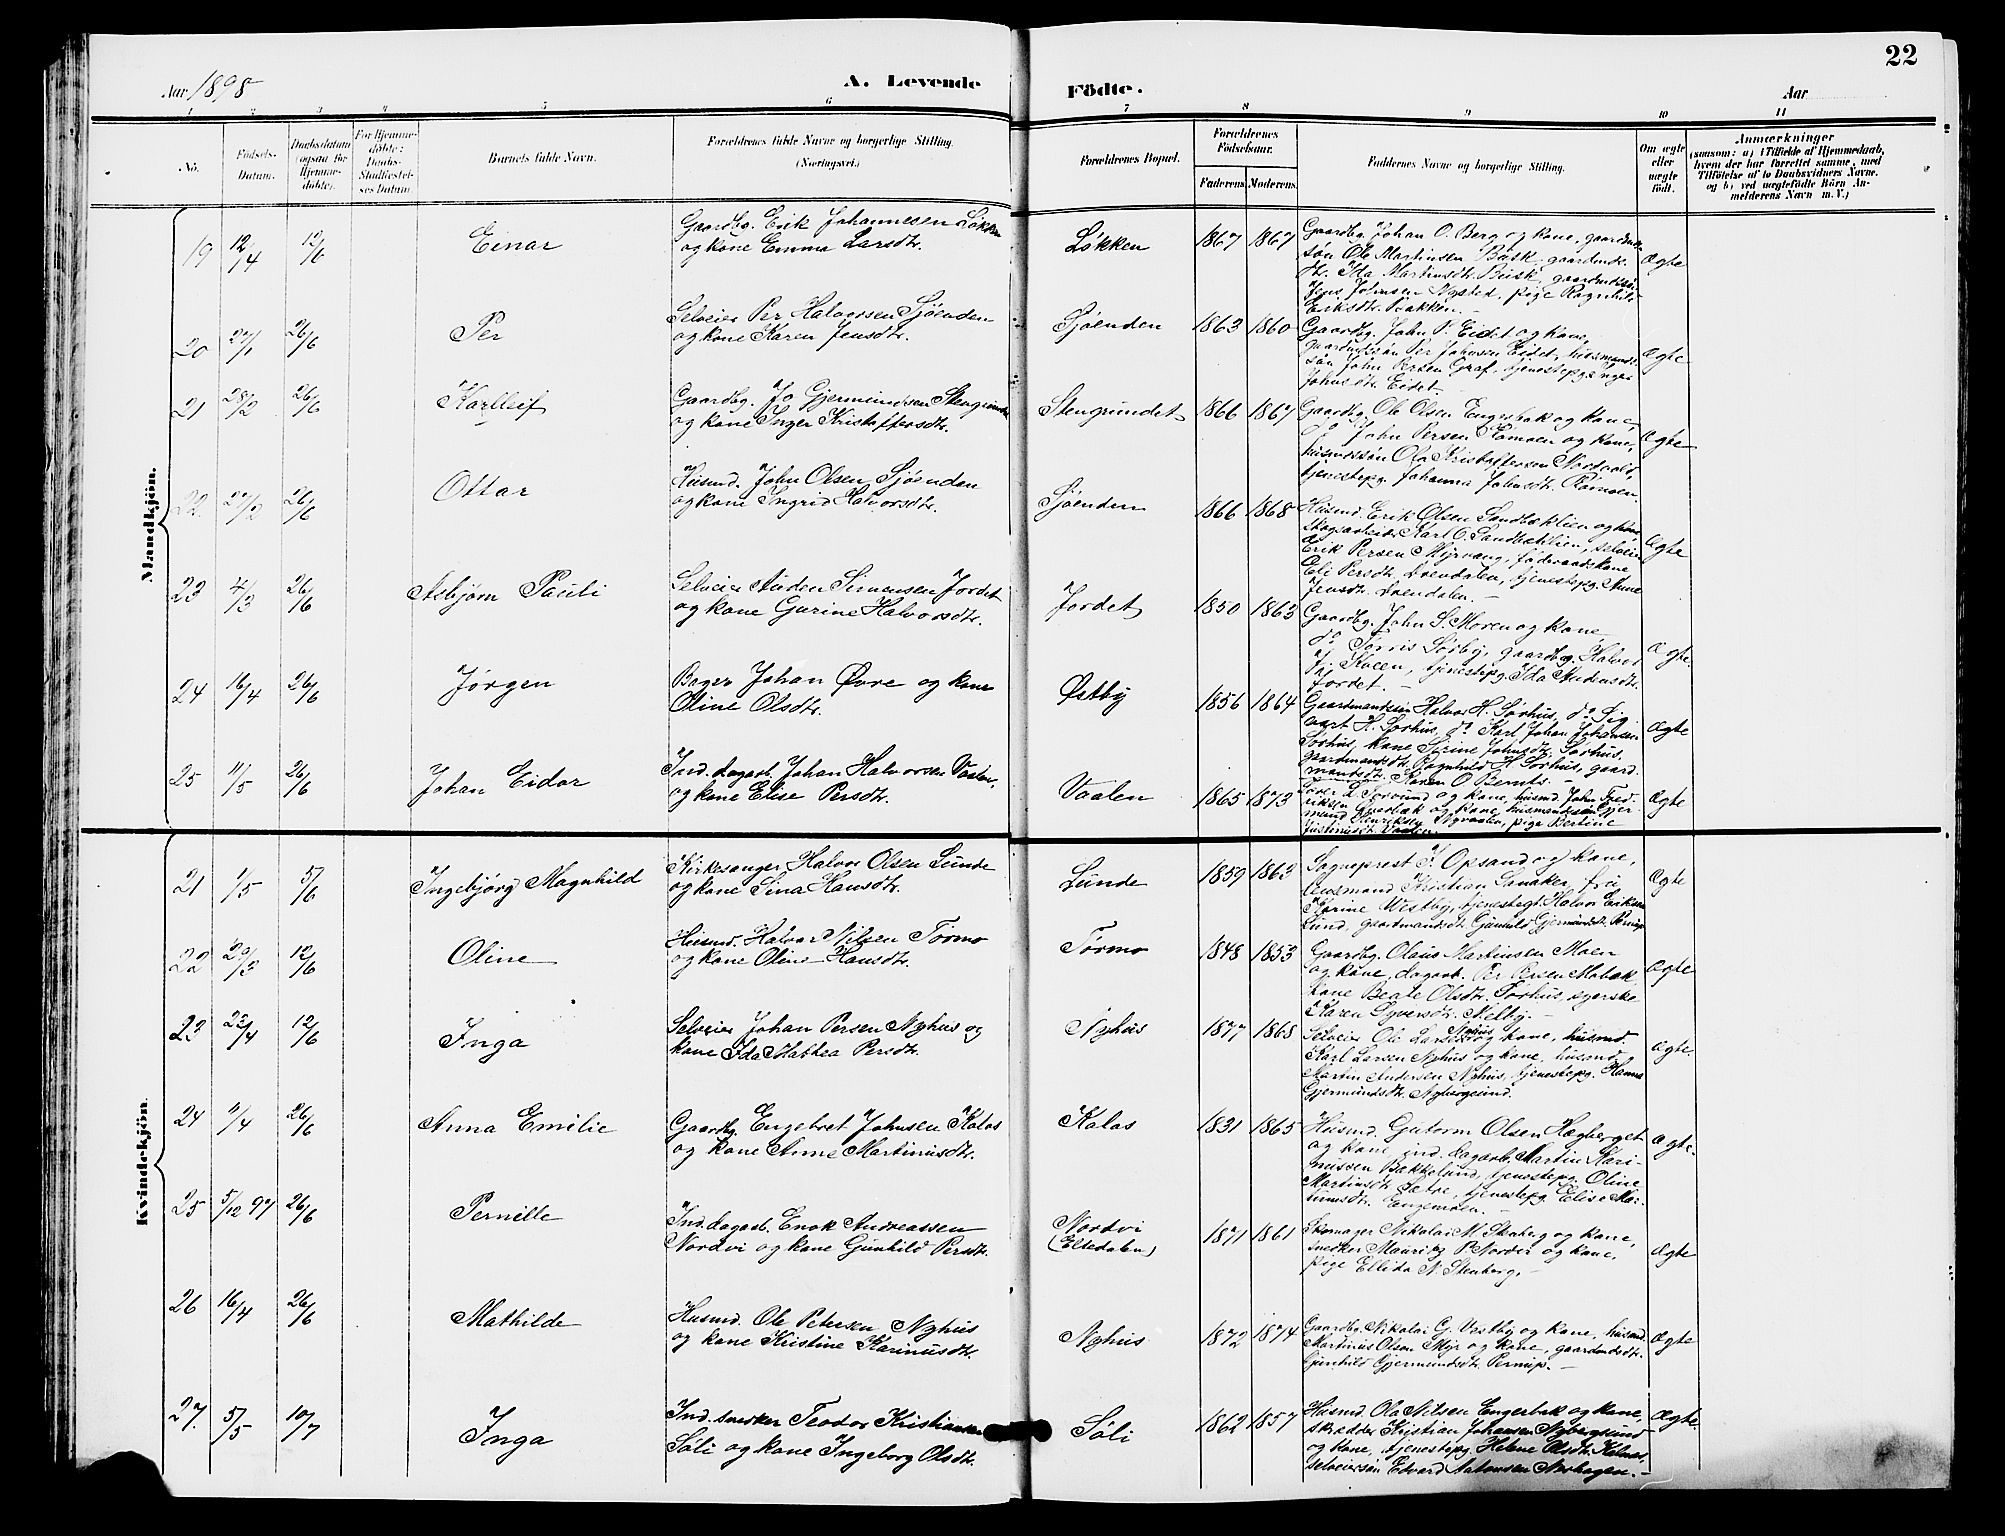 22
Aar 1898
A. Levende
Födte.
Aar
1 2 3 4 5 6 7 8 9 10 11
No.
Födsels-
Datum.
Daabsdatum
(ogsaa for
Hjemme-
döbte).
For Hjemme-
döbte:
Daabs-
Stadfæstel-
ses Datum.
Barnets fulde Navn.
Forældrenes fulde Navne og borgerlige Stilling.
(Næringsvei.)
Forældrenes Bopæl.
Forældrenes
Födselsaar.
Faderens. Moderens.
Faddernes Navne og borgerlige Stilling.
Om ægte
eller
uægte
födt.
Anmærkninger
(saasom: a) i Tilfælde af Hjemmedaab,
hvem der har forrettet samme, med
Tilföielse af to Daabsvidners Navne,
og b) ved uægtefödte Börn An-
melderens Navn m. V.)
Mandkjön.
19 12/4 12/6 Einar
Gaardbg. Erik Johannesen Løkken
og kone Emma Larsdtr.
Løkken 1867 1867
Gaardbg. Johan O. Berg og kone, gaardmds-
søn Ole Martinsen Busk, gaardmds.
dtr. Ida Martinsdtr. Busk, gaardmdssøn
Jens Johnsen Nysted, pige Ragnhild
Eriksdtr. Bakken.
Ægte
20 27/1 26/6 Per
Selveier Per Halvorsen Sjøenden
og kone Karen Jensdtr.
Sjøenden 1863 1860
Gaardbg. John P. Eidet og kone,
gaardmdssøn Per Johnsen Eidet, husmands-
søn John Persen Graf, tjenestepg. Inger
Johnsdtr. Eidet
Ægte
21 28/2 26/6 Karlleif
Gaardbg. Jo Gjermundsen Stengrundet
og kone Inger Kristoffersdtr.
Stengrundet 1866 1867
Gaardbg. Ole Olsen Engerbak og kone,
do John Persen Rømoen og kone,
husmdssøn Ola Kristoffersen Nordvold,
tjenestepg. Johanna Johnsdtr. Rømoen.
Ægte
22. 27/2 26/6 Ottar
Husmd. John Olsen Sjøenden
og kone Ingrid Halvorsdtr.
Sjøenden 1866 1868
Husmd. Erik Olsen Sandbæklien og kone
skogsarbeider Karl O. Sandbæklien, selveier
Erik Persen Myrvang, føderaadskone
Eli Persdtr. , tjenestepg. Anne
Jensdtr.
Ægte
23 4/3 26/6 Asbjørn Pauli
Selveier Auden Simensen Jordet
og kone Gurine Halvorsdtr.
Jordet 1850 1863
Gaardbg. John S. Moren og kone
do Torris Sørby, gaardbg. Halvor
J. , tjenestepg. Ida Audensdtr.
Jordet.
Ægte.
24 16/4 26/6 Jørgen
Bager Johan Øvre og kone
Oline Olsdtr.
Østby 1856 1864
Gaardmandssøn Halvor H. Sørhus, do Sig-
vart H. Sørhus, do Karl Johan Johansen
Sørhus, kone Sirine Johnsdtr. Sørhus,
gaardmandsdtr. Ragnhild H. Sørhus, gaard-
mandsdtr. Karen O.
Ægte
25 11/5 26/6 Johan Eidar
Ind. dagarb. Johan Halvorsen Vaalen,
og kone Elise Persdtr.
Vaalen 1865 1873
og kone, husmd. John Fred-
riksen og kone, husmandssøn Gjer-
mund Myrvalen, pige Bertine
Justinusdtr. Vaalen
Ægte
Kvindekjön.
21 1/5 5/6 Ingebjørg Magnhild
Kirkesanger Halvor Olsen Lunde
og kone Sina Hansdtr.
Lunde 1859 1863
Sogneprest K. Opsand og kone,
lensmand Kristian Sanaker, frk.
Karine Westby, tjenestegt. Halvor Eriksen
Lund, gaardmandsdtr. Gunhild Gjermundsdtr. Pernup
Ægte
22 29/3 12/6 Oline
Husmd. Halvor Nilsen Tørmo
og kone Oline Hansdtr.
Tørmo 1848 1853
Gaardbg. Olaus Martinsen Moen
og kone, dagarb. Per Persen Mobæk,
kone Beate Olsdtr. Torhus, syerske
Karen Syversdtr. Nelby.
Ægte
23 22/4 12/6 Inga
Selveier Johan Persen Nyhus og
kone Ida Mathea Persdtr.
Nyhus 1877 1868
Selveier Ole Larsen Nyhus og kone, husmd.
Karl Larsen Nyhus og kone, husmd.
Martin Andersen Nyhus, tjenestepg. Hanna
Gjermundsdtr. Nybergsund.
Ægte.
24 9/4 26/6 Anna Emilie
Gaardbg. Engebret Johnsen Kolos
og kone Anne Martinusdtr.
Kolos 1831 1865
Husmd. Gutorm Olsen Hægberget
og kone, ind. dagarb. Martin Kari-
nussen Bakkelund, tjenestepg. Oline
Martinsdtr. Sætre, tjenestepg. Elise Mar-
tinusdtr. Engemoen.
Ægte.
25 5/12 97 26/6 Pernille
Ind. dagarb. Enok Andreassen
Nordvi og kone Gunhild Persdtr.
Nordvi
(Eltedalen)
1871 1861
Skomager Nikolai M. Skaberg og kone,
snedker Mauritz P. Nordvi og kone,
pige Ellida N. Stenberg.
Ægte
26 16/4 26/6 Mathilde
Husmd. Ole Petersen Nyhus
og kone Kristine Karinusdtr.
Nyhus 1872 1874
Gaardbg. Nikolai G. Vestby og kone, husmd.
Martinus Olsen Myr og kone, gaardmdsdtr.
Gunhild Gjermundsdtr. Pernup.
Ægte
27. 5/5 10/7 Inga
Ind. snedker Teodor Kristiansen
Søli og kone Ingeborg Olsdtr.
Søli 1862 1857
Husmd. Ola Nilsen Engerbak og kone,
skrædder Kristian Johansen Nybergsund
og kone, tjenestepg. Helene Olsdtr. Kolos,
selveiersøn Edvard Norhagen.
Ægte.